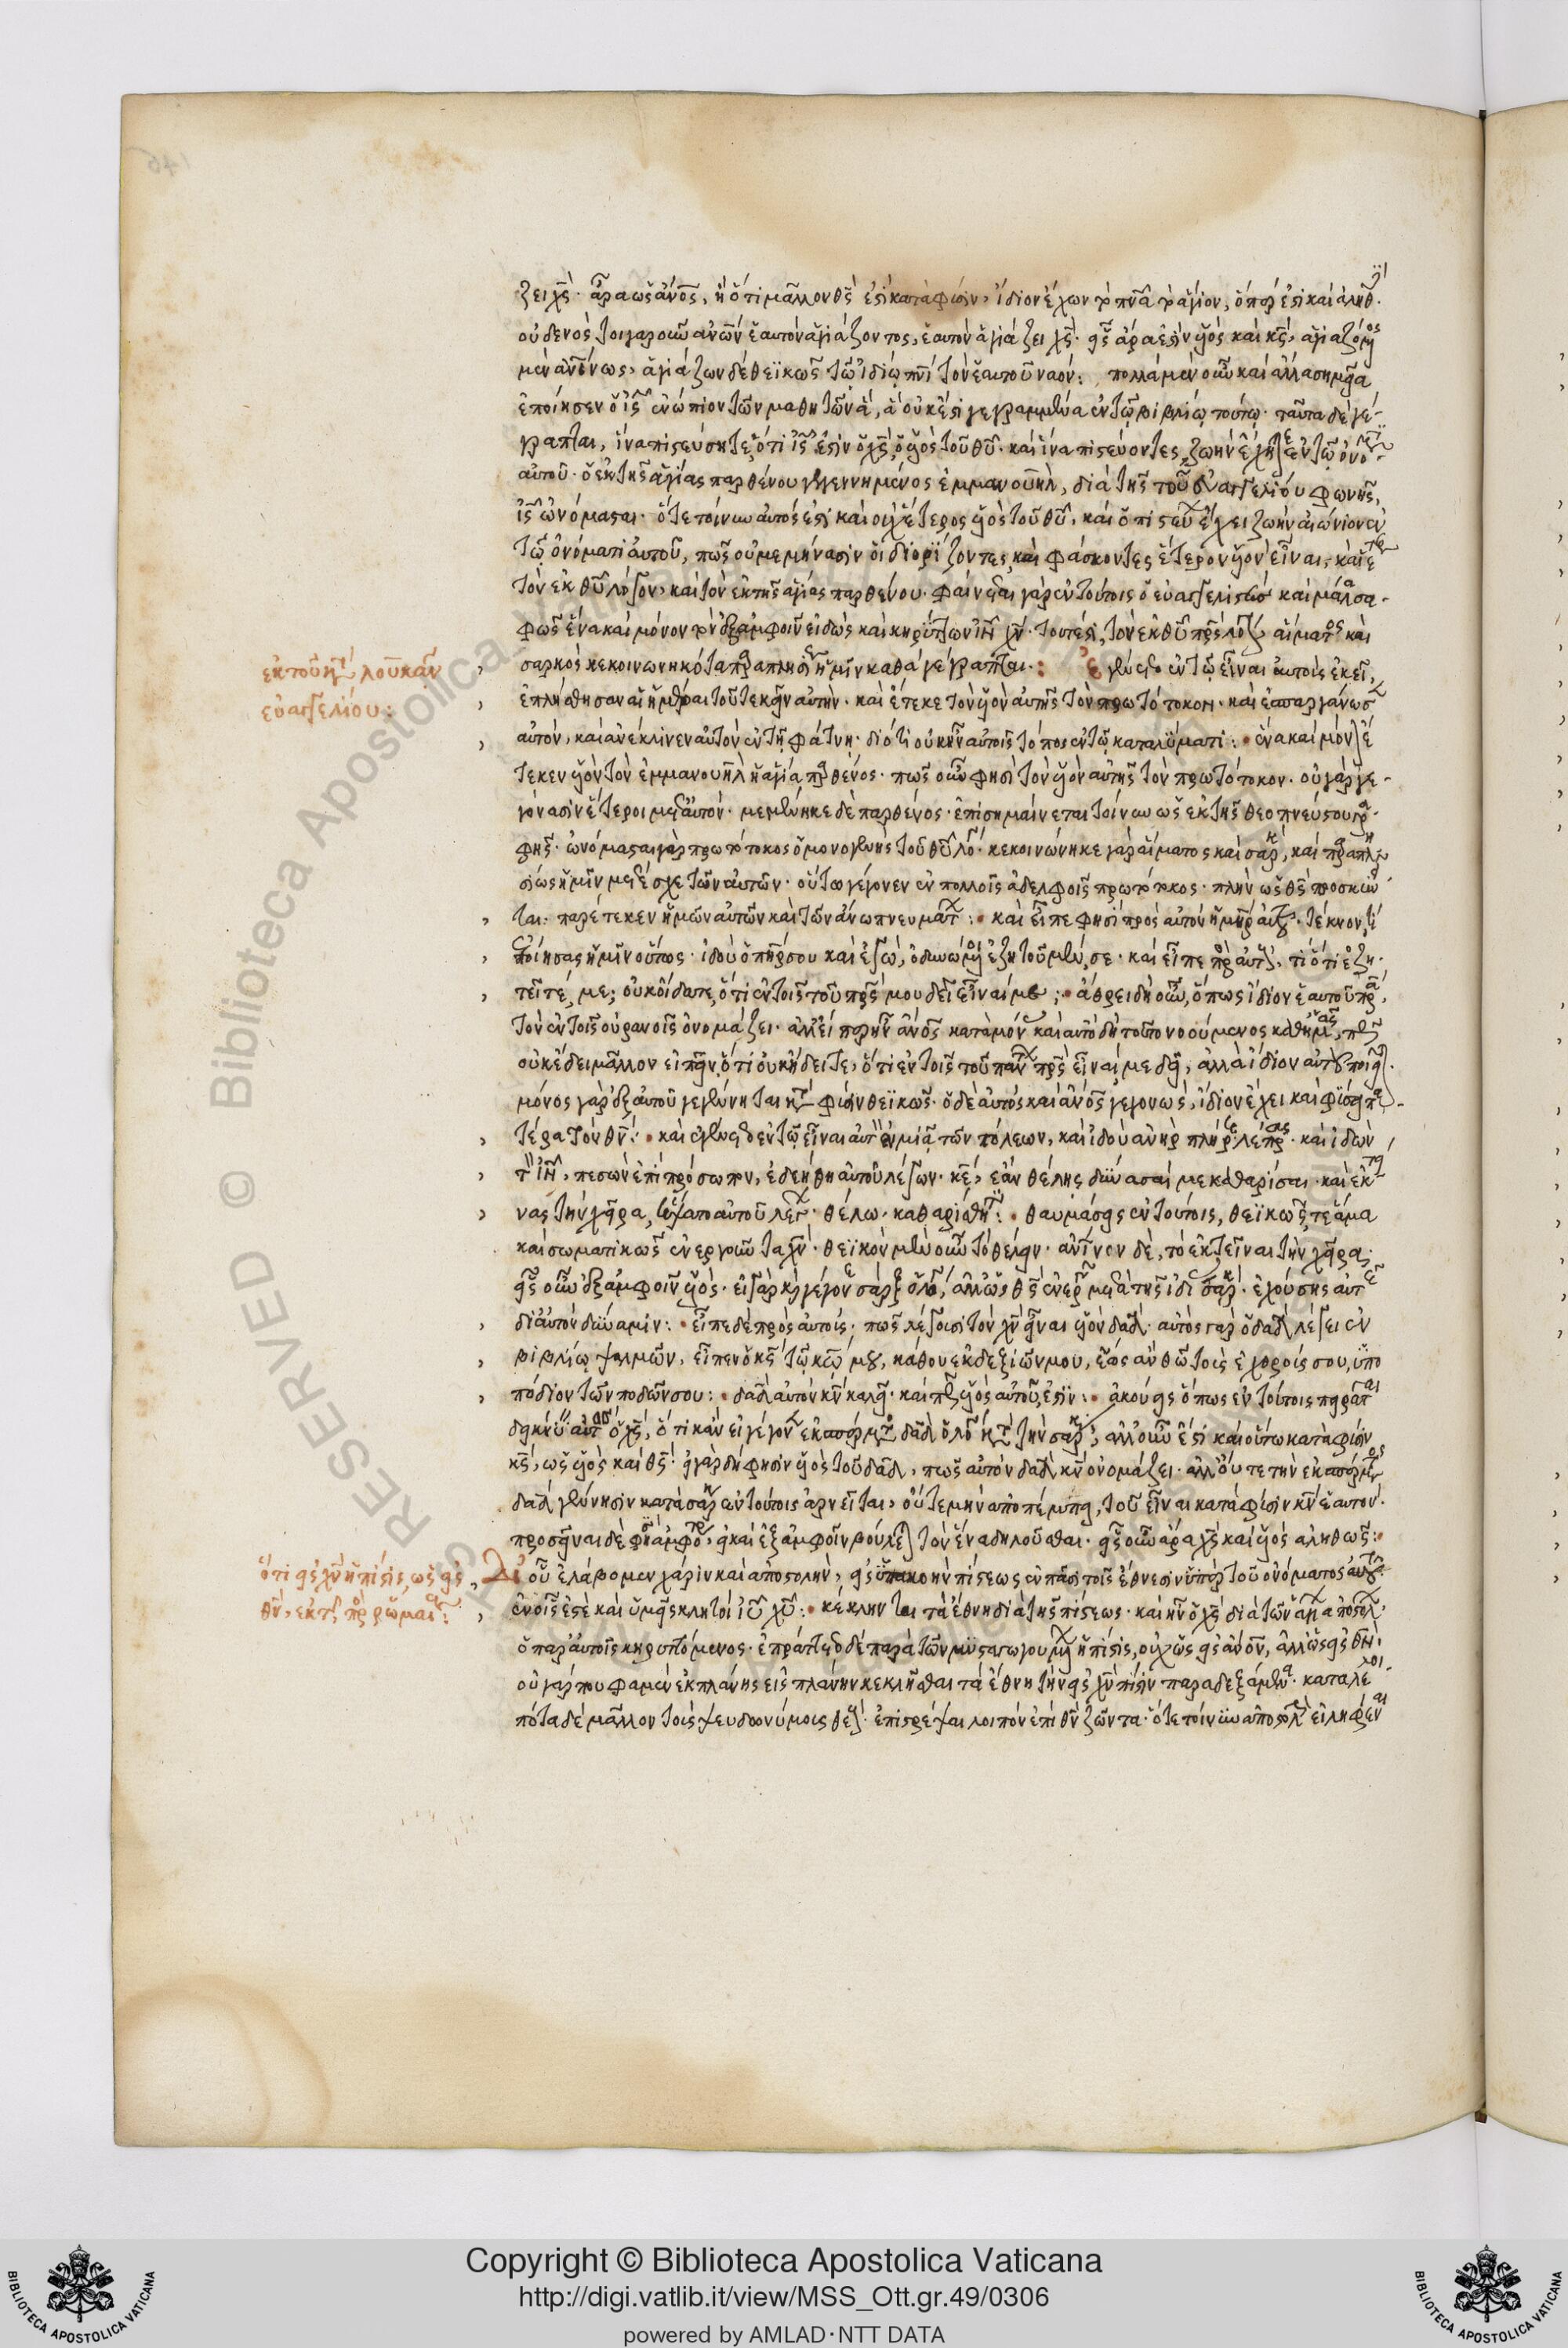 ζει χς· ἆρα ὡς ἄνος, ἢ ὅτι μᾶλλον θς ἐστὶ κατὰ φύσιν, ἴδιον ἔχων τὸ πνα τὸ ἅγιον, ὅπερ ἐστὶ καὶ ἀληθ.
οὐδενὸς τοιγαροῦν ἀνων ἑαυτὸν ἁγιάζοντος, ἑαυτὸν ἁγιάζει χς· εἷς ἄρα ἐστὶν υἱὸς καὶ κς, ἁγιαζόμ
μὲν ἀνίνως, ἁγιάζων δὲ θεϊκῶς τῷ ἰδίῳ πνι τὸν ἑαυτοῦ ναόν: πολλὰ μὲν οὖν καὶ ἄλλα σημεῖα
ἐποίησεν ὁ ις ἐνώπιον τῶν μαθητῶν, ἃ οὐκ ἔστι γεγραμμένα ἐν τῷ βιβλίῳ τούτῳ· ταῦτα δὲ γέ-
γραπται, ἵνα πιστεύσητε, ὅτι ις ἐστὶν ὁ χς, ὁ υἱὸς τοῦ θυ· καὶ ἵνα πιστεύοντες, ζωὴν ἔχητε ἐν τῷ ὀνό
αὐτοῦ· ὁ ἐκ τῆς ἁγίας παρθένου γεγεννημένος ἐμμανουὴλ, διὰ τῆς τοῦ εὐαγγελίου φωνῆς,
ις ὠνόμασται· ὅτε τοίνυν αὐτός ἐστι καὶ οὐχ ἕτερος υἱὸς τοῦ θυ, καὶ ὁ πιστεύ ἔχει ζωὴν αἰώνιον ἐν
τῷ ὀνόματι αὐτοῦ, πῶς οὐ μεμήνασιν οἱ διορίζοντες, καὶ φάσκοντες ἕτερον υἱὸν εἶναι, καὶ ἕτε
τὸν ἐκ θυ λόγον, καὶ τὸν ἐκ τῆς ἁγίας παρθένου· φαίνεται γὰρ ἐν τούτοις ὁ εὐαγγελιστὴς καὶ μάλα σα-
φῶς ἕνα καὶ μόνον τὸν ἐξ ἀμφοῖν εἰδὼς καὶ κηρύττων ιν χν· τουτέστι, τὸν ἐκ θυ πρς λόγ, αἵματος καὶ
σαρκὸς κεκοινωνηκότα παραπλησί ἡμῖν καθὰ γέγραπται: ἐγένετο ἐν τῷ εἶναι αὐτοὺς ἐκεῖ,
ἐπλήσθησαν αἱ ἡμέραι τοῦ τεκεῖν αὐτὴν· καὶ ἔτεκε τὸν υἱὸν αὐτῆς τὸν πρωτότοκον· καὶ ἐσπαργάνωσ
αὐτὸν, καὶ ἀνέκλινεν αὐτὸν ἐν τῇ φάτνῃ· διότι οὐκ ἦν αὐτοῖς τόπος ἐν τῷ καταλύματι: ἕνα καὶ μόν ἔ
τεκεν υἱὸν τὸν ἐμμανουὴλ ἡ ἁγία παρθένος· πῶς οὖν φησὶ τὸν υἱὸν αὐτῆς τὸν πρωτότοκον· οὐ γὰρ γε-
γόνασιν ἕτεροι μετ αὐτόν· μεμένηκε δὲ παρθένος· ἐπισημαίνεται τοίνυν ὡς ἐκ τῆς θεοπνεύστου γρα-
φῆς· ὠνόμασται γὰρ πρωτότοκος ὁ μονογενὴς τοῦ θυ λό· κεκοινώνηκε γὰρ αἵματος καὶ σαρκ, καὶ παραπλη
σίως ἡμῖν μετέσχε τῶν αὐτῶν· οὕτω γέγονεν ἐν πολλοῖς ἀδελφοῖς πρωτότοκος· πλὴν ὡς θς προσκυν
ται· καὶ εἶπε φησὶ πρὸς αὐτὸν ἡ μηρ αὐτοῦ· τέκνον, τί
ἐποίησας ἡμῖν οὕτως· ἰδοὺ ὁ πηρ σου καὶ ἐγὼ, ὀδυνώμ ἐζητοῦμέν σε· καὶ εἶπε πρὸ αὐτ, τί ὅτι ἐζη-
τεῖτέ με; οὐκ οἴδατε, ὅτι ἐν τοῖς τοῦ πρς μου δεῖ εἶναί με; ἄθρει δὴ οὖν, ὅπως ἴδιον ἑαυτοῦ πρα,
τὸν ἐν τοῖς οὐρανοῖς ὀνομάζει· ἀλλ εἴπερ ἦν ἄνος κατὰ μόν καὶ αὐτὸ δὴ τοῦτο νοούμενος καθ ἡμᾶς,
οὐκ ἔδει μᾶλλον εἰπεῖν, ὅτι οὐκ ᾔδειτε, ὅτι ἐν τοῖς τοῦ πάντ πρς εἶναί με δεῖ, ἀλλὰ ἴδιον αὐτοῦ ποιεῖ
μόνος γὰρ ἐξ αὐτοῦ γεγέννηται κατ φύσιν θεϊκῶς· ὁ δὲ αὐτὸς καὶ ἄνος γεγονὼς, ἴδιον ἔχει καὶ φύσει πα-
τέρα τὸν θν: καὶ ἐγένετο ἐν τῷ εἶναι αὐτὸν ἐν μιᾷ τῶν πόλεων, καὶ ἰδοὺ ἀνὴρ πλήρ λέπρας· καὶ ἰδὼν
τὸν ιν, πεσὼν ἐπὶ πρόσωπον, ἐδεήθη αὐτοῦ λέγων· κε, ἐὰν θέλῃς δύνασαί με καθαρίσαι· καὶ ἐκτεί
νας τὴν χεῖρα, ἥψατο αὐτοῦ λέγ· θέλω· καθαρίσθητι: θαυμάσεις ἐν τούτοις, θεϊκῶς τε ἅμα
καὶ σωματικῶς ἐνεργοῦντα χν· θεϊκὸν μὲν οὖν τὸ θέλειν· ἀνινον δὲ, τὸ ἐκτεῖναι τὴν χεῖρα·
εἷς οὖν ἐξ ἀμφοῖν υἱός· εἰ γὰρ καὶ γέγονε σὰρξ ὁ λό, ἀλλ ὡς θς ἐνερ μετὰ τῆς ἰδί σαρκ· ἐχούσης αὐτ
δι αὐτὸν δύναμιν: εἶπε δὲ πρὸς αὐτούς· πῶς λέγουσι τὸν χν εἶναι υἱὸν δαδ· αὐτὸς γὰρ ὁ δαδ λέγει ἐν
βιβλίῳ ψαλμῶν, εἶπεν ὁ κς τῷ κω μου, κάθου ἐκ δεξιῶν μου, ἕως ἂν θῶ τοὺς ἐχθρούς σου, ὑπο
πόδιον τῶν ποδῶν σου: δαδ αὐτὸν κν καλεῖ· καὶ πῶς υἱὸς αὐτοῦ ἐστιν: ἀκούεις ὅπως ἐν τούτοις πειρᾶται
δεικνύ αὐτ ὁ χς, ὅτι κἂν εἰ γέγον ἐκ σπέρματ δαδ ὁ λό κατ τὴν σάρκ, ἀλλ οὖν ἐστὶ καὶ οὕτω κατὰ φύσιν
κς, ὡς υἱὸς καὶ θς· εἰ γὰρ δή φησιν υἱὸς τοῦ δαδ, πῶς αὐτὸν δαδ κν ὀνομάζει· ἀλλ οὔτε τὴν ἐκ σπέρματος
δαδ γέννησιν κατὰ σάρκ ἐν τούτοις ἀρνεῖται, οὔτε μὴν ἀποπέμπει, τοῦ εἶναι κατὰ φύσιν κν ἑαυτόν·
προσεῖναι δὲ φησιν ἀμφότ, εἰ καὶ ἐξ ἀμφοῖν βούλε τὸν ἕνα δηλοῦσθαι· εἷς οὖν ἄρα χς καὶ υἱὸς ἀληθῶς:
Δι οὗ ἐλάβομεν χάριν καὶ ἀποστολὴν, εἰς ὑπακοὴν πίστεως ἐν πᾶσι τοῖς ἔθνεσιν ὑπὲρ τοῦ ὀνόματος αὐτοῦ
ἐν οἷς ἐστὲ καὶ ὑμεῖς κλητοὶ ιυ χυ: κέκληνται τὰ ἔθνη διὰ τῆς πίστεως· καὶ ἦν ὁ χς διὰ τῶν ἁγί ἀποστόλ,
ὁ παρ αὐτοῖς κηρυττόμενος· ἐπράττετο δὲ παρὰ τῶν μυσταγωγουμ ἡ πίστις, οὐχ ὡς εἰς ἄνον, ἀλλ ὡς εἰς θν·
οὐ γάρ που φαμὲν ἐκ πλάνης εἰς πλάνην κεκλῆσθαι τὰ ἔθνη τὴν εἰς χν πίστιν παραδεξάμενα· καταλελοι-
πότα δὲ μᾶλλον τοὺς ψευδωνύμους θε· ἐπιστρέψαι λοιπὸν ἐπὶ θν ζῶντα· ὅτε τοίνυν ἀποστολ εἰλήφεν
ἐκ τοῦ κατ λουκᾶν
εὐαγγελίου:
ὅτι εἰς χν ἡ πίστις, ὡς εἰς
θν, ἐκ τῆς πρ ῥωμαί:
Copyright © Biblioteca Apostolica Vaticana
http://digi.vatlib.it/view/MSS_Ott.gr.49/0306
powered by AMLAD·NTT DATA